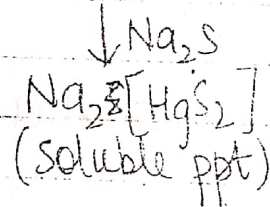 ↓ Na₂S
Na₂[HgS₂]
(Soluble ppt)